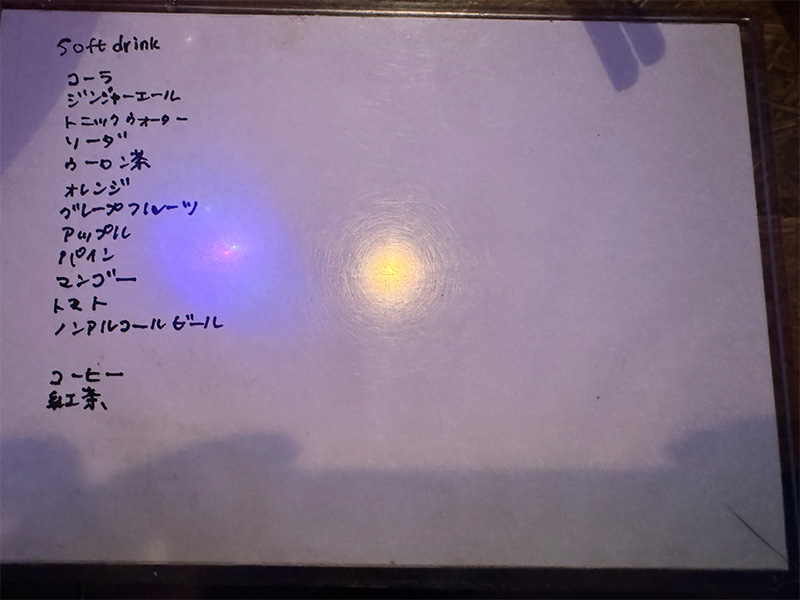 Soft drink
コーラ
ジンジャーエール
トニックウォーター
ソーダ
ウーロン茶
オレンジ
グレープフルーツ
アップル
パイン
マンゴー
トマト
ノンアルコールビール
コーヒー
紅茶